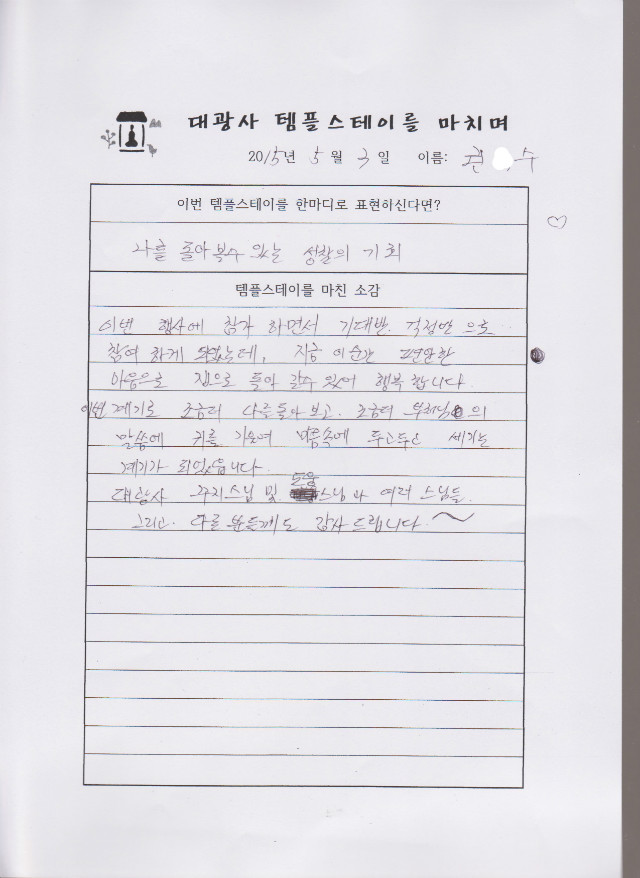 대광사 템플스테이를 마치며
2015년 5월 3일 이름: 권 수
이번 템플스테이를 한마디로 표현하신다면?
나를 돌아볼수 있는 성찰의 기회
템플스테이를 마친 소감
이번 행사에 참가 하면서 기대반. 걱정반 으로
참여 하게 되었는데, 지금 이순간 편안한
마음으로 집으로 돌아 갈수 있어 행복 합니다.
이번 계기로 조금더 나를 돌아 보고. 조금더 부처님의
말씀에 귀를 기울여 마음속에 두고두고 새기는
계기가 되었습니다.
도웅
대광사 주지스님 및 스님과 여러 스님들.
그리고. 다른 분들께도 감사 드립니다.